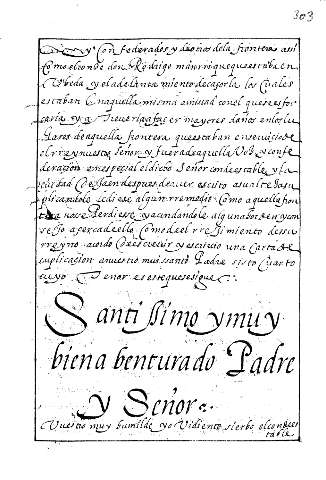 303
y confederados y deonos dela frontera assi
como el conde don Rodrigo manrrique que estaba en
Vbeda y el adelantamiento de caçorla los cuales
estaban en aquella misma amistad con el que se esfor
caria y a hacer mayores daños en los lu
gares de aquella frontera que estaban en servicio de
el rrey nuestro Señor y fuera de aquella Vos y confe
deracion en especial el dicho Señor condestable y la
ciudad de Jaen despues de aver escrito a su alteza su
plicandole le diese algun rremedio como aquella fron
tera no se Perdiese y no dandole alguno
acerca de ello como de el rregimiento de ssu
rreyno acordo de escrevir y escrivio una Carta de
suplicacion a nuestro mui santo Padre sisto Cuarto
cuyo Tenor es este que se sigue
Santissimo y muy
bienabenturado Padre
y Señor
Vuestro muy humilde y ovidiente sierbo el condes
table